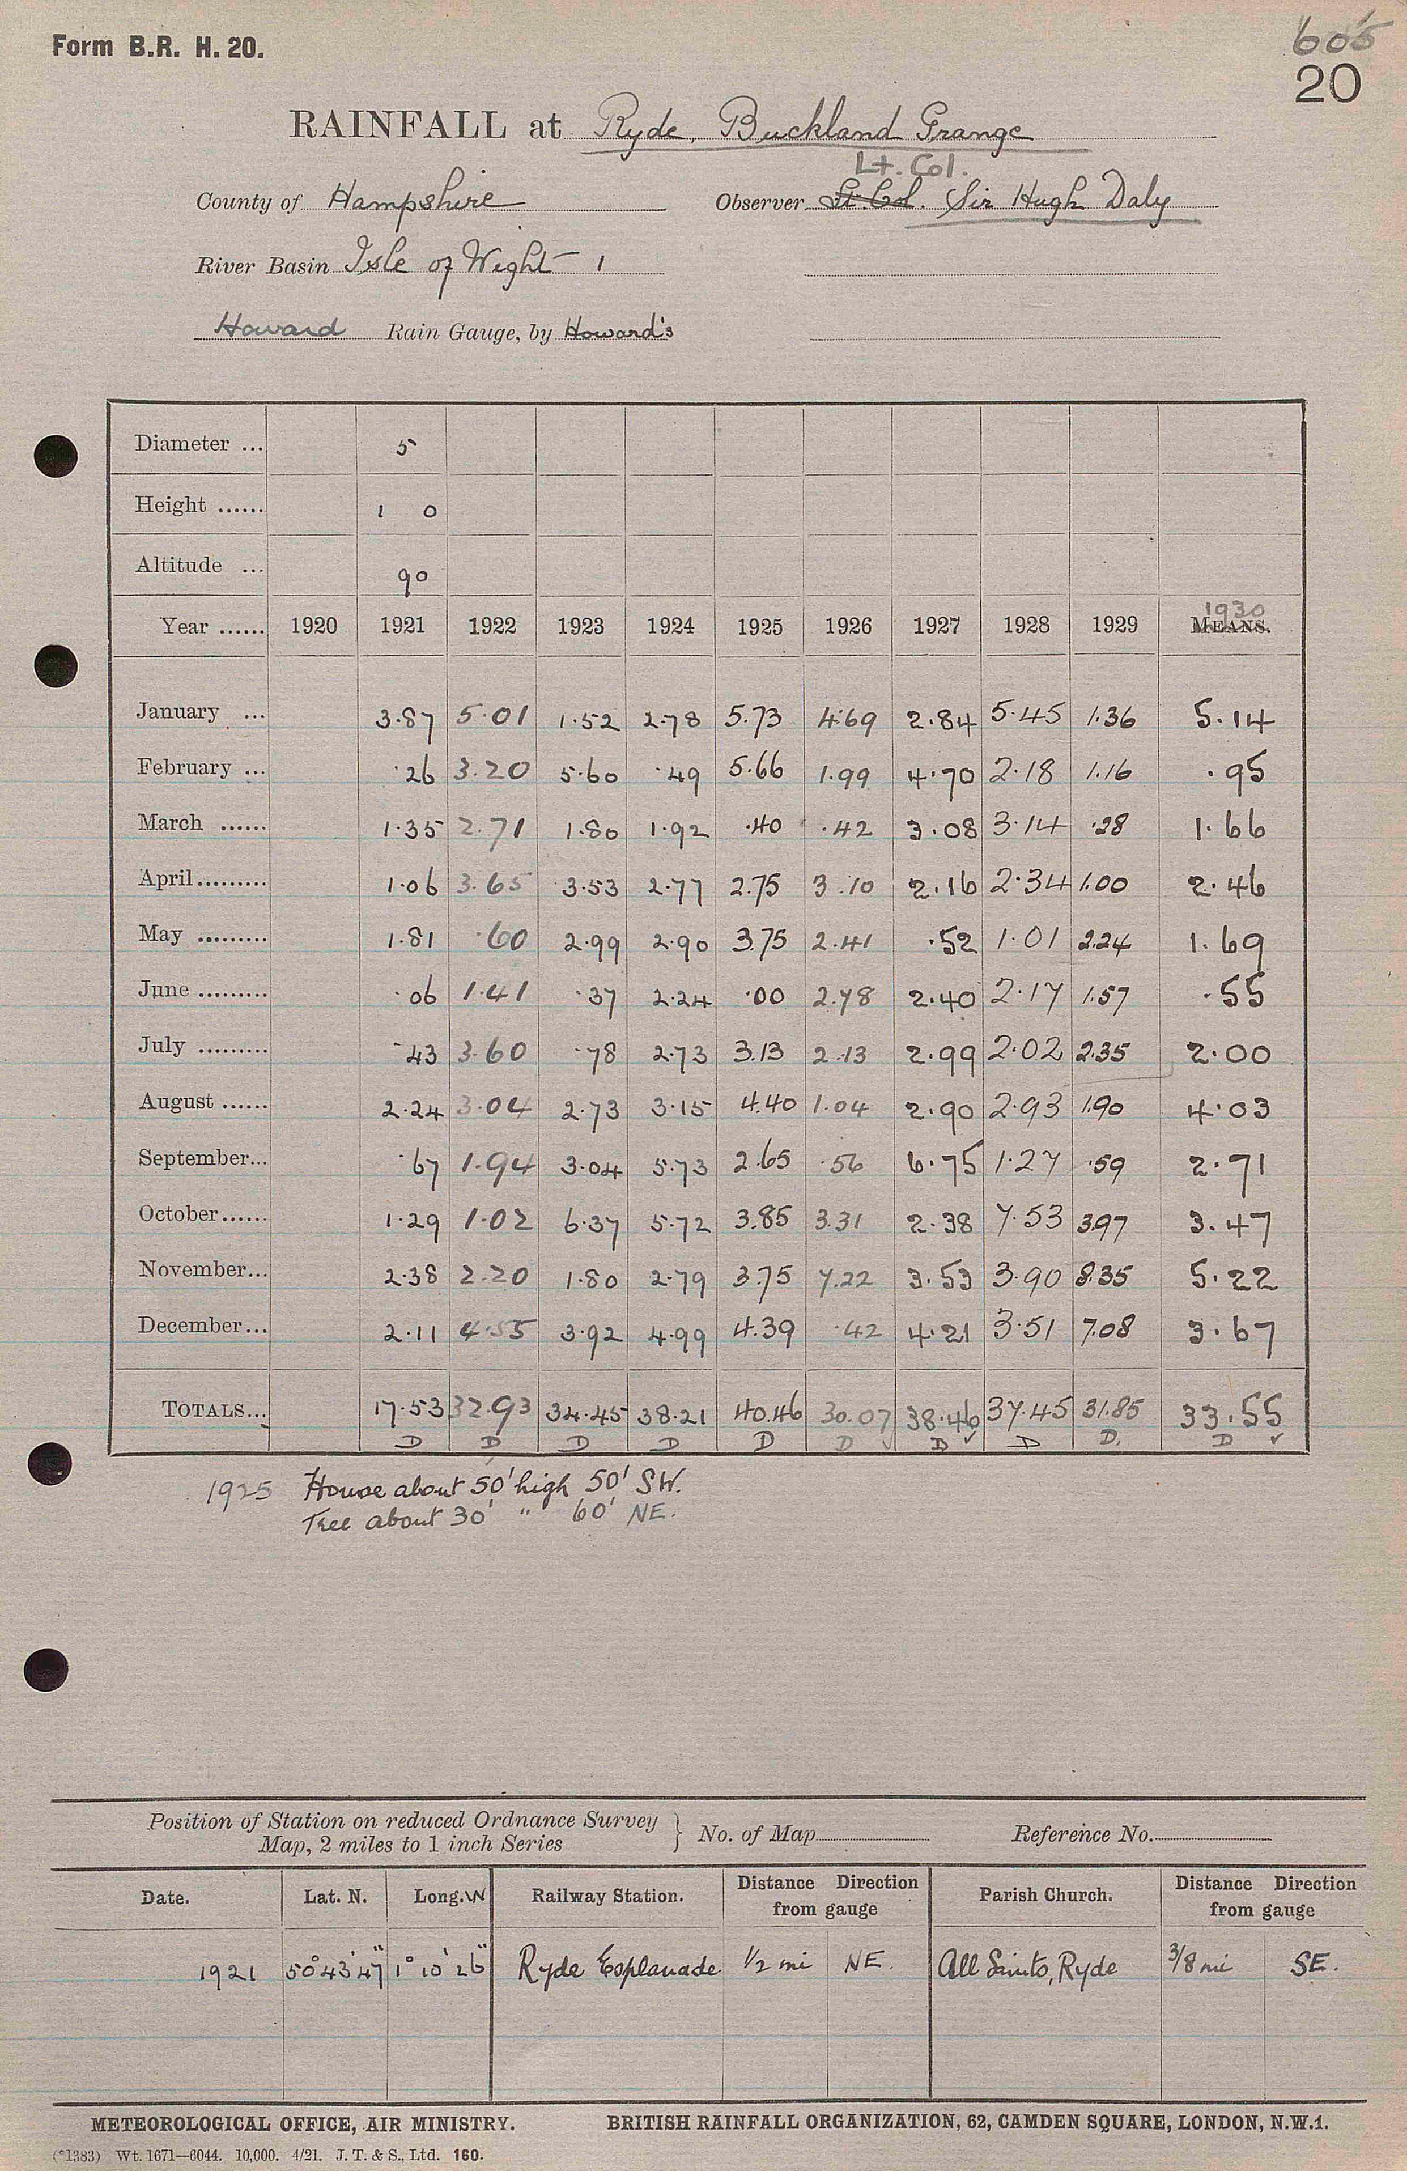 Form B.R. H. 20.
605
20
RAINFALL at Ryde, Buckland Grange
Lt. Col.
County of Hampshire Observer Lt. Col. Sir Hugh Daly
River Basin Isle of Wight 1
Howard Rain Gauge, by Howard's
Diameter ... 5
Height ...... 1 0
Altitude ... 90
1930
Year ...... 1920 1921 1922 1923 1924 1925 1926 1927 1928 1929 MEANS.
January ... 3.87 5.01 1.52 2.78 5.73 4.69 2.84 5.45 1.36 5.14
February ... .26 3.20 5.60 .49 5.66 1.99 4.70 2.18 1.16 .95
March ...... 1.35 2.71 1.80 1.92 .40 .42 3.08 3.14 .28 1.66
April......... 1.06 3.65 3.53 2.77 2.75 3.10 2.16 2.34 1.00 2.46
May ......... 1.81 .60 2.99 2.90 3.75 2.41 .52 1.01 2.24 1.69
June ......... .06 1.41 .37 2.24 .00 2.78 2.40 2.17 1.57 .55
July ......... .43 3.60 .78 2.73 3.13 2.13 2.99 2.02 2.35 2.00
August ...... 2.24 3.04 2.73 3.15 4.40 1.04 2.90 2.93 1.90 4.03
September... .67 1.94 3.04 5.73 2.65 .56 6.75 1.27 .59 2.71
October...... 1.29 1.02 6.37 5.72 3.85 3.31 2.38 7.53 3.97 3.47
November... 2.38 2.20 1.80 2.79 3.75 7.22 3.53 3.90 8.35 5.22
December... 2.11 4.55 3.92 4.99 4.39 .42 4.21 3.51 7.08 3.67
TOTALS... 17.53 32.93 34.45 38.21 40.46 30.07 38.46 37.45 31.85 33.55
D D D D D D D ✓ D D. D ✓
1925 House about 50' high 50' SW.
Tree about 30' " 60' NE.
Position of Station on reduced Ordnance Survey
Map, 2 miles to 1 inch Series } No. of Map Reference No.
Date. Lat. N. Long. W Railway Station. Distance Direction from gauge Parish Church. Distance Direction from gauge
1921 50° 43' 47" 1° 10' 26" Ryde Esplanade 1/2 mi NE. All Saints, Ryde 3/8 mi SE.
METEOROLOGICAL OFFICE, AIR MINISTRY. BRITISH RAINFALL ORGANIZATION, 62, CAMDEN SQUARE, LONDON, N.W.1.
(*1383) Wt. 1671—6044. 10,000. 4/21. J. T. & S., Ltd. 160.